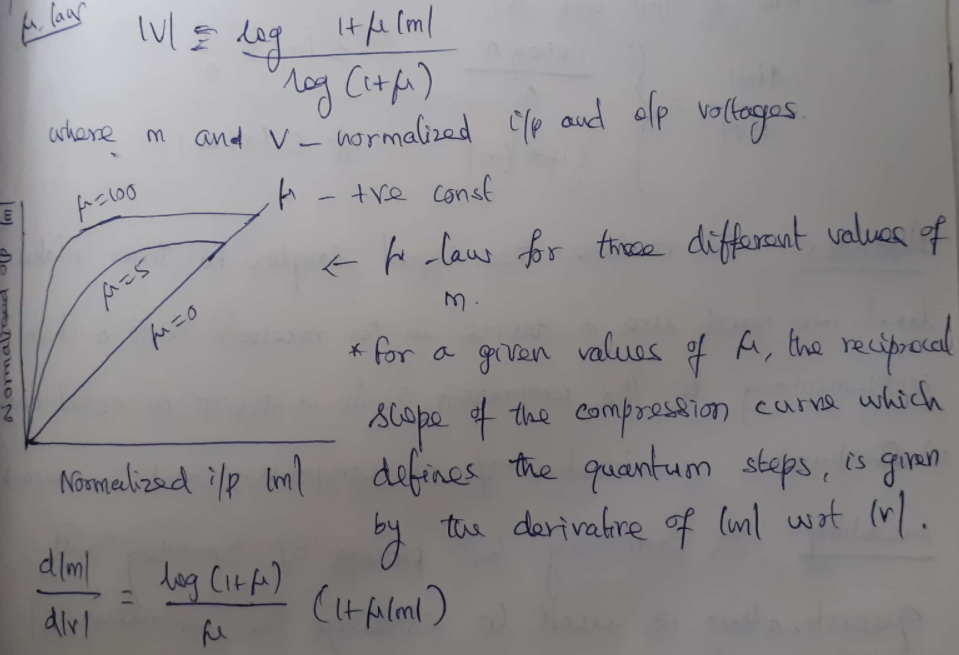 μ law
|V| = log 1+μ|m|
log (1+μ)
where m and v – normalized i/p and o/p voltages.
μ – +ve const
μ=100
μ=5
μ=0
Normalized o/p |m|
Normalized i/p |m|
← μ-law for three different values of
m.
* for a given values of μ, the reciprocal
slope of the compression curve which
defines the quantum steps, is given
by the derivative of |m| wrt |v|.
d|m| / d|v| = log (1+μ) / μ (1+μ|m|)